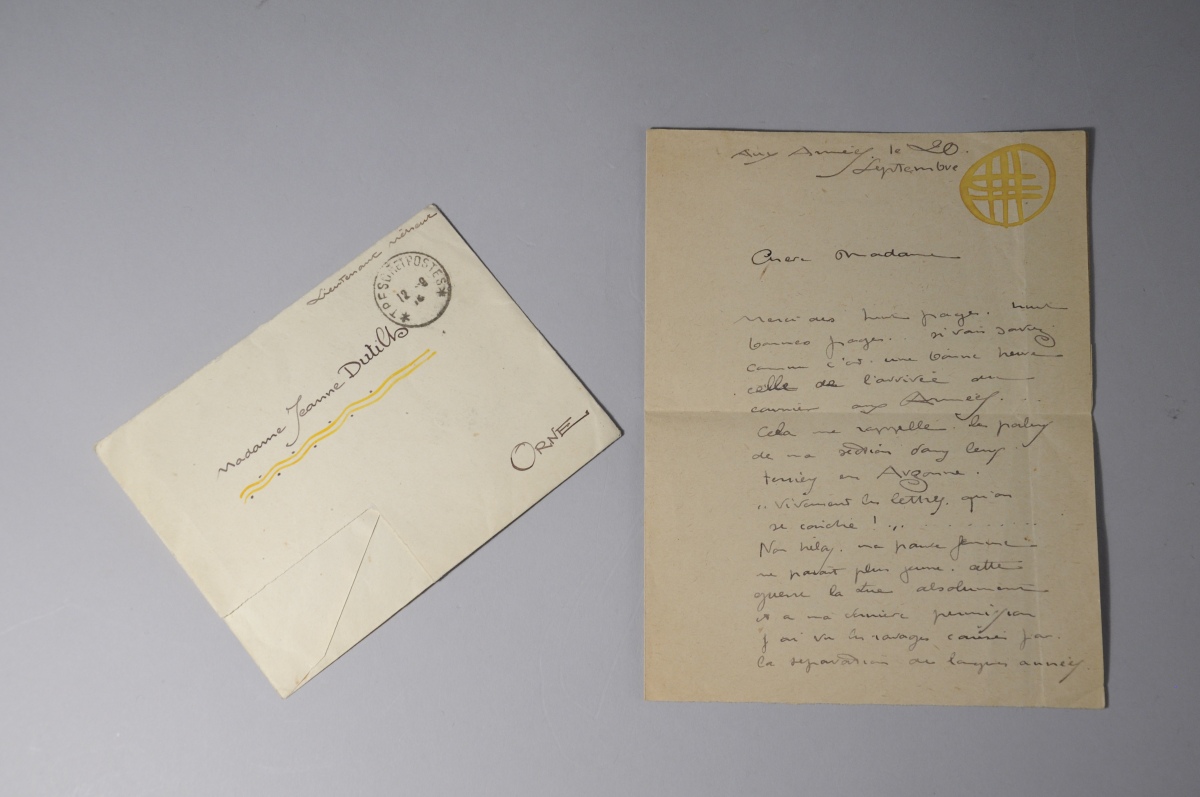 Lieutenant
TRESOR ET POSTES
12 - 9
16
Madame Jeanne Dutilh
ORNE
Aux Armées, le 20.
Septembre
Chere Madame
Merci des huit pages. huit
bonnes pages... si vous saviez
comme c'est une bonne heure
celle de l'arrivée du
courrier aux Armées.
Cela me rappelle les poilus
de ma section dans leurs
terriers en Argonne.
.. vivement les lettres, qu'on
se couche ! ..
Non hélas, ma pauvre femme
ne parait plus jeune. cette
guerre la tue absolument
et a ma dernière permission
j'ai vu les ravages causés par
la separation de longues années